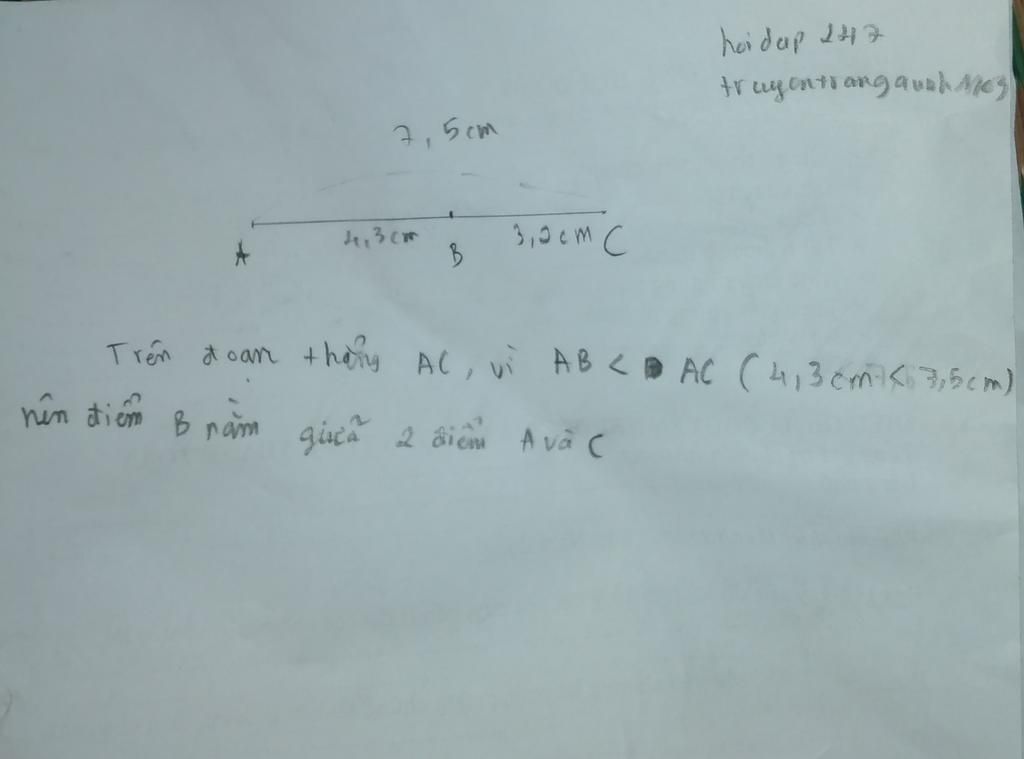 hoidap 247
7,5cm
4,3cm
3,2cm
A
B
C
Trên đoạn thẳng AC, vì AB < AC (4,3cm < 7,5cm)
nên điểm B nằm giữa 2 điểm A và C